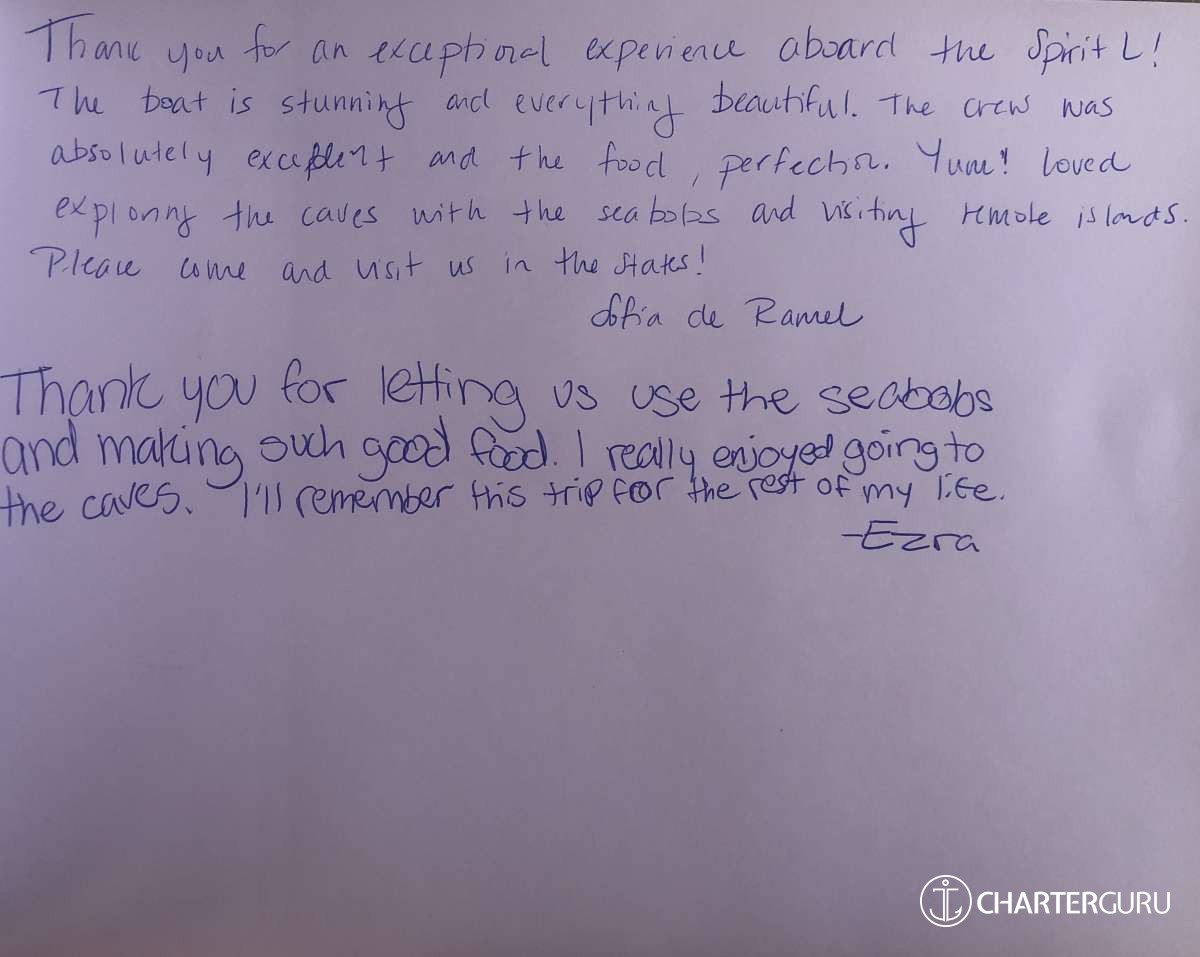 Thank you for an exceptional experience aboard the Spirit L!
The boat is stunning and everything beautiful. The crew was
absolutely excellent and the food, perfection. Yum! loved
exploring the caves with the seabobs and visiting remote islands.
Please come and visit us in the States!
Sofia de Ramel
Thank you for letting us use the seabobs
and making such good food. I really enjoyed going to
the caves. I'll remember this trip for the rest of my life.
-Ezra
CHARTERGURU